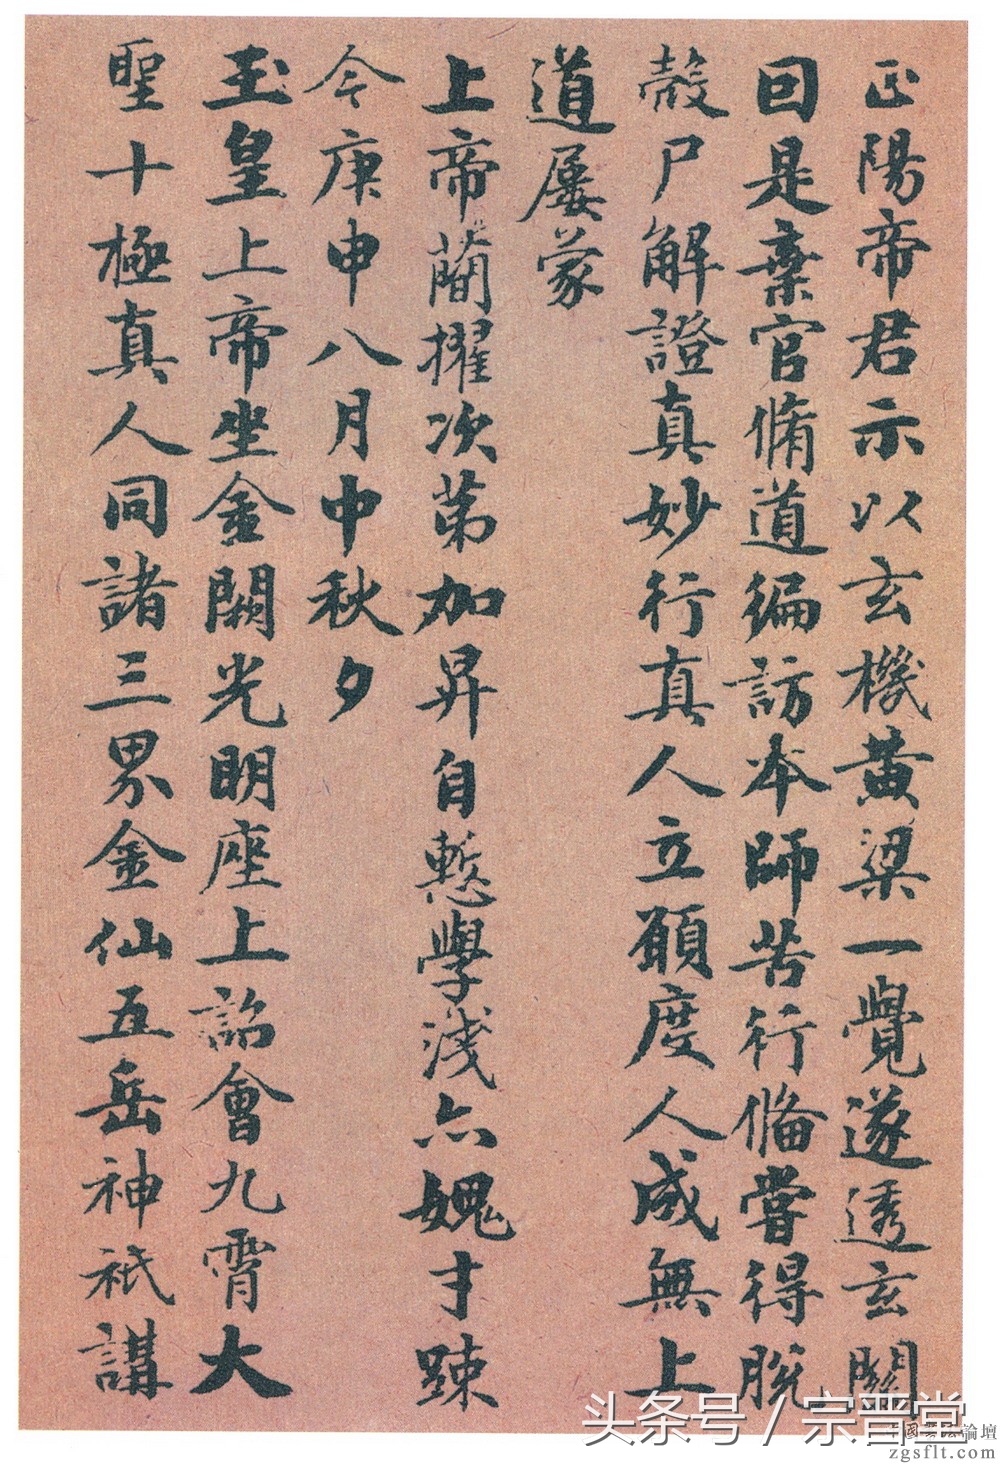 正陽帝君示以玄機黄粱一覺遂透玄関
回是棄官脩道徧訪本師苦行備嘗得脫
殼尸解證真妙行真人立願度人成無上
道屡蒙
上帝蕳擢次第加昇自慙學淺亦媿才踈
今庚申八月中秋夕
玉皇上帝坐金闕光明座上詔會九霄大
聖十極真人同諸三界金仙五岳神祇講
头条号 / 宗晋堂
中國書法論壇
zgsflt.com